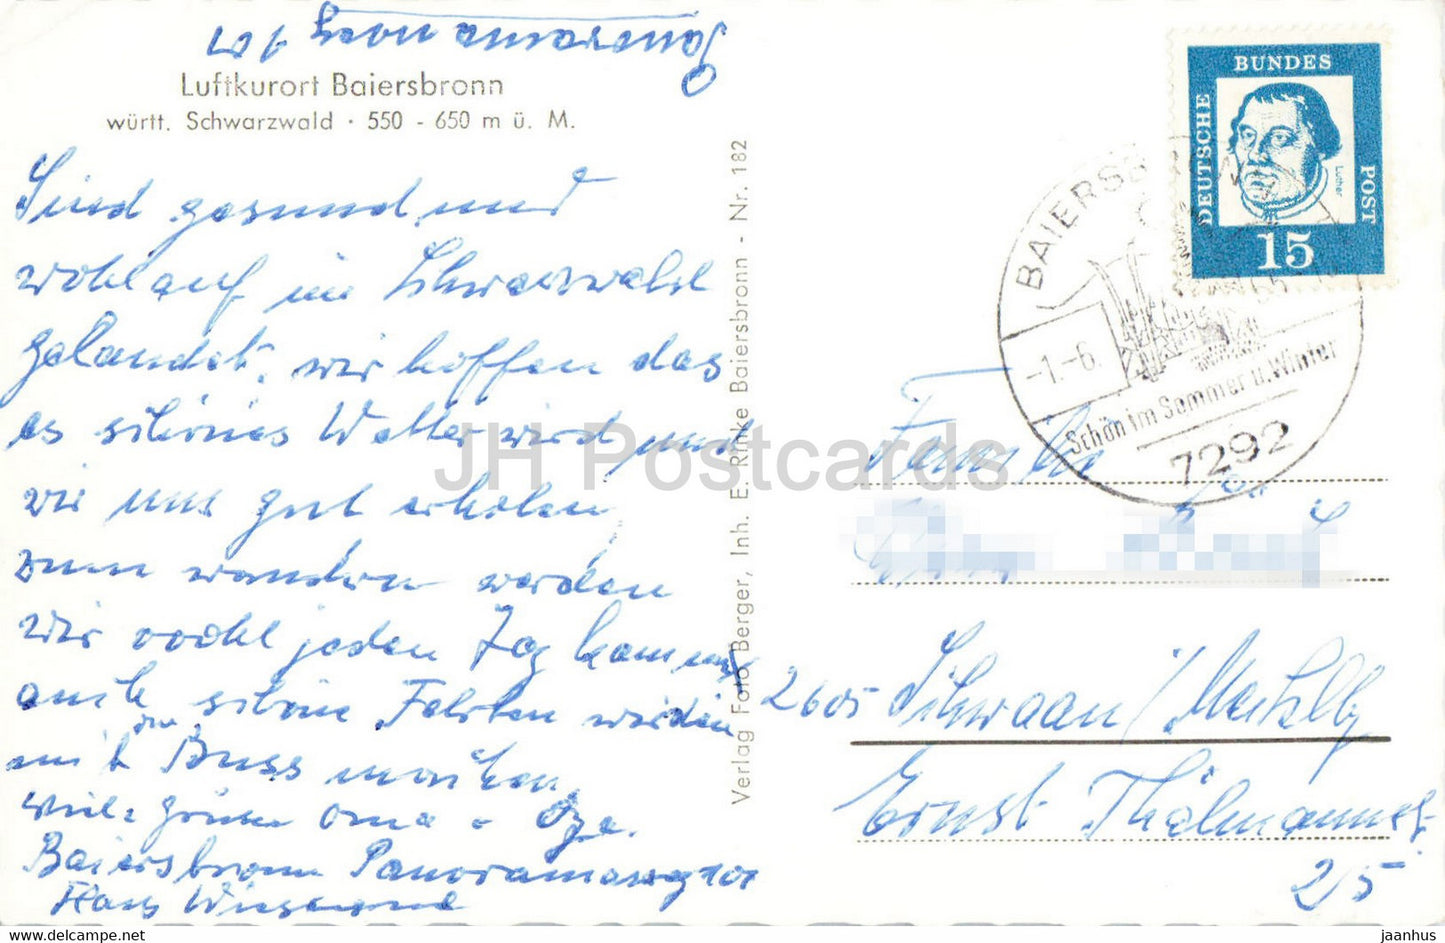 Panoramaweg 101
Luftkurort Baiersbronn
württ. Schwarzwald · 550 - 650 m ü. M.
Sind gesund und
wohlauf im Schwarzwald
gelandet, wir hoffen das
es schönes Wetter wird und
wir uns gut erholen,
zum wandern werden
wir wohl jeden Tag kommen
auch schöne Fahrten werden
mit dem Buss machen,
viele Grüße Oma - Opa.
Baiersbronn Panoramaweg 101
Haus
Verlag Foto Berger, Inh. E. Rinke Baiersbronn - Nr. 182
DEUTSCHE
BUNDES
POST
Luther
15
BAIERSB
-1.-6.
65
Schön im Sommer u. Winter
7292
Familie
2605 Schwaan / Mecklbg
Ernst Thälmannstr.
2/5
JH Postcards
delcampe.net
jaanhus